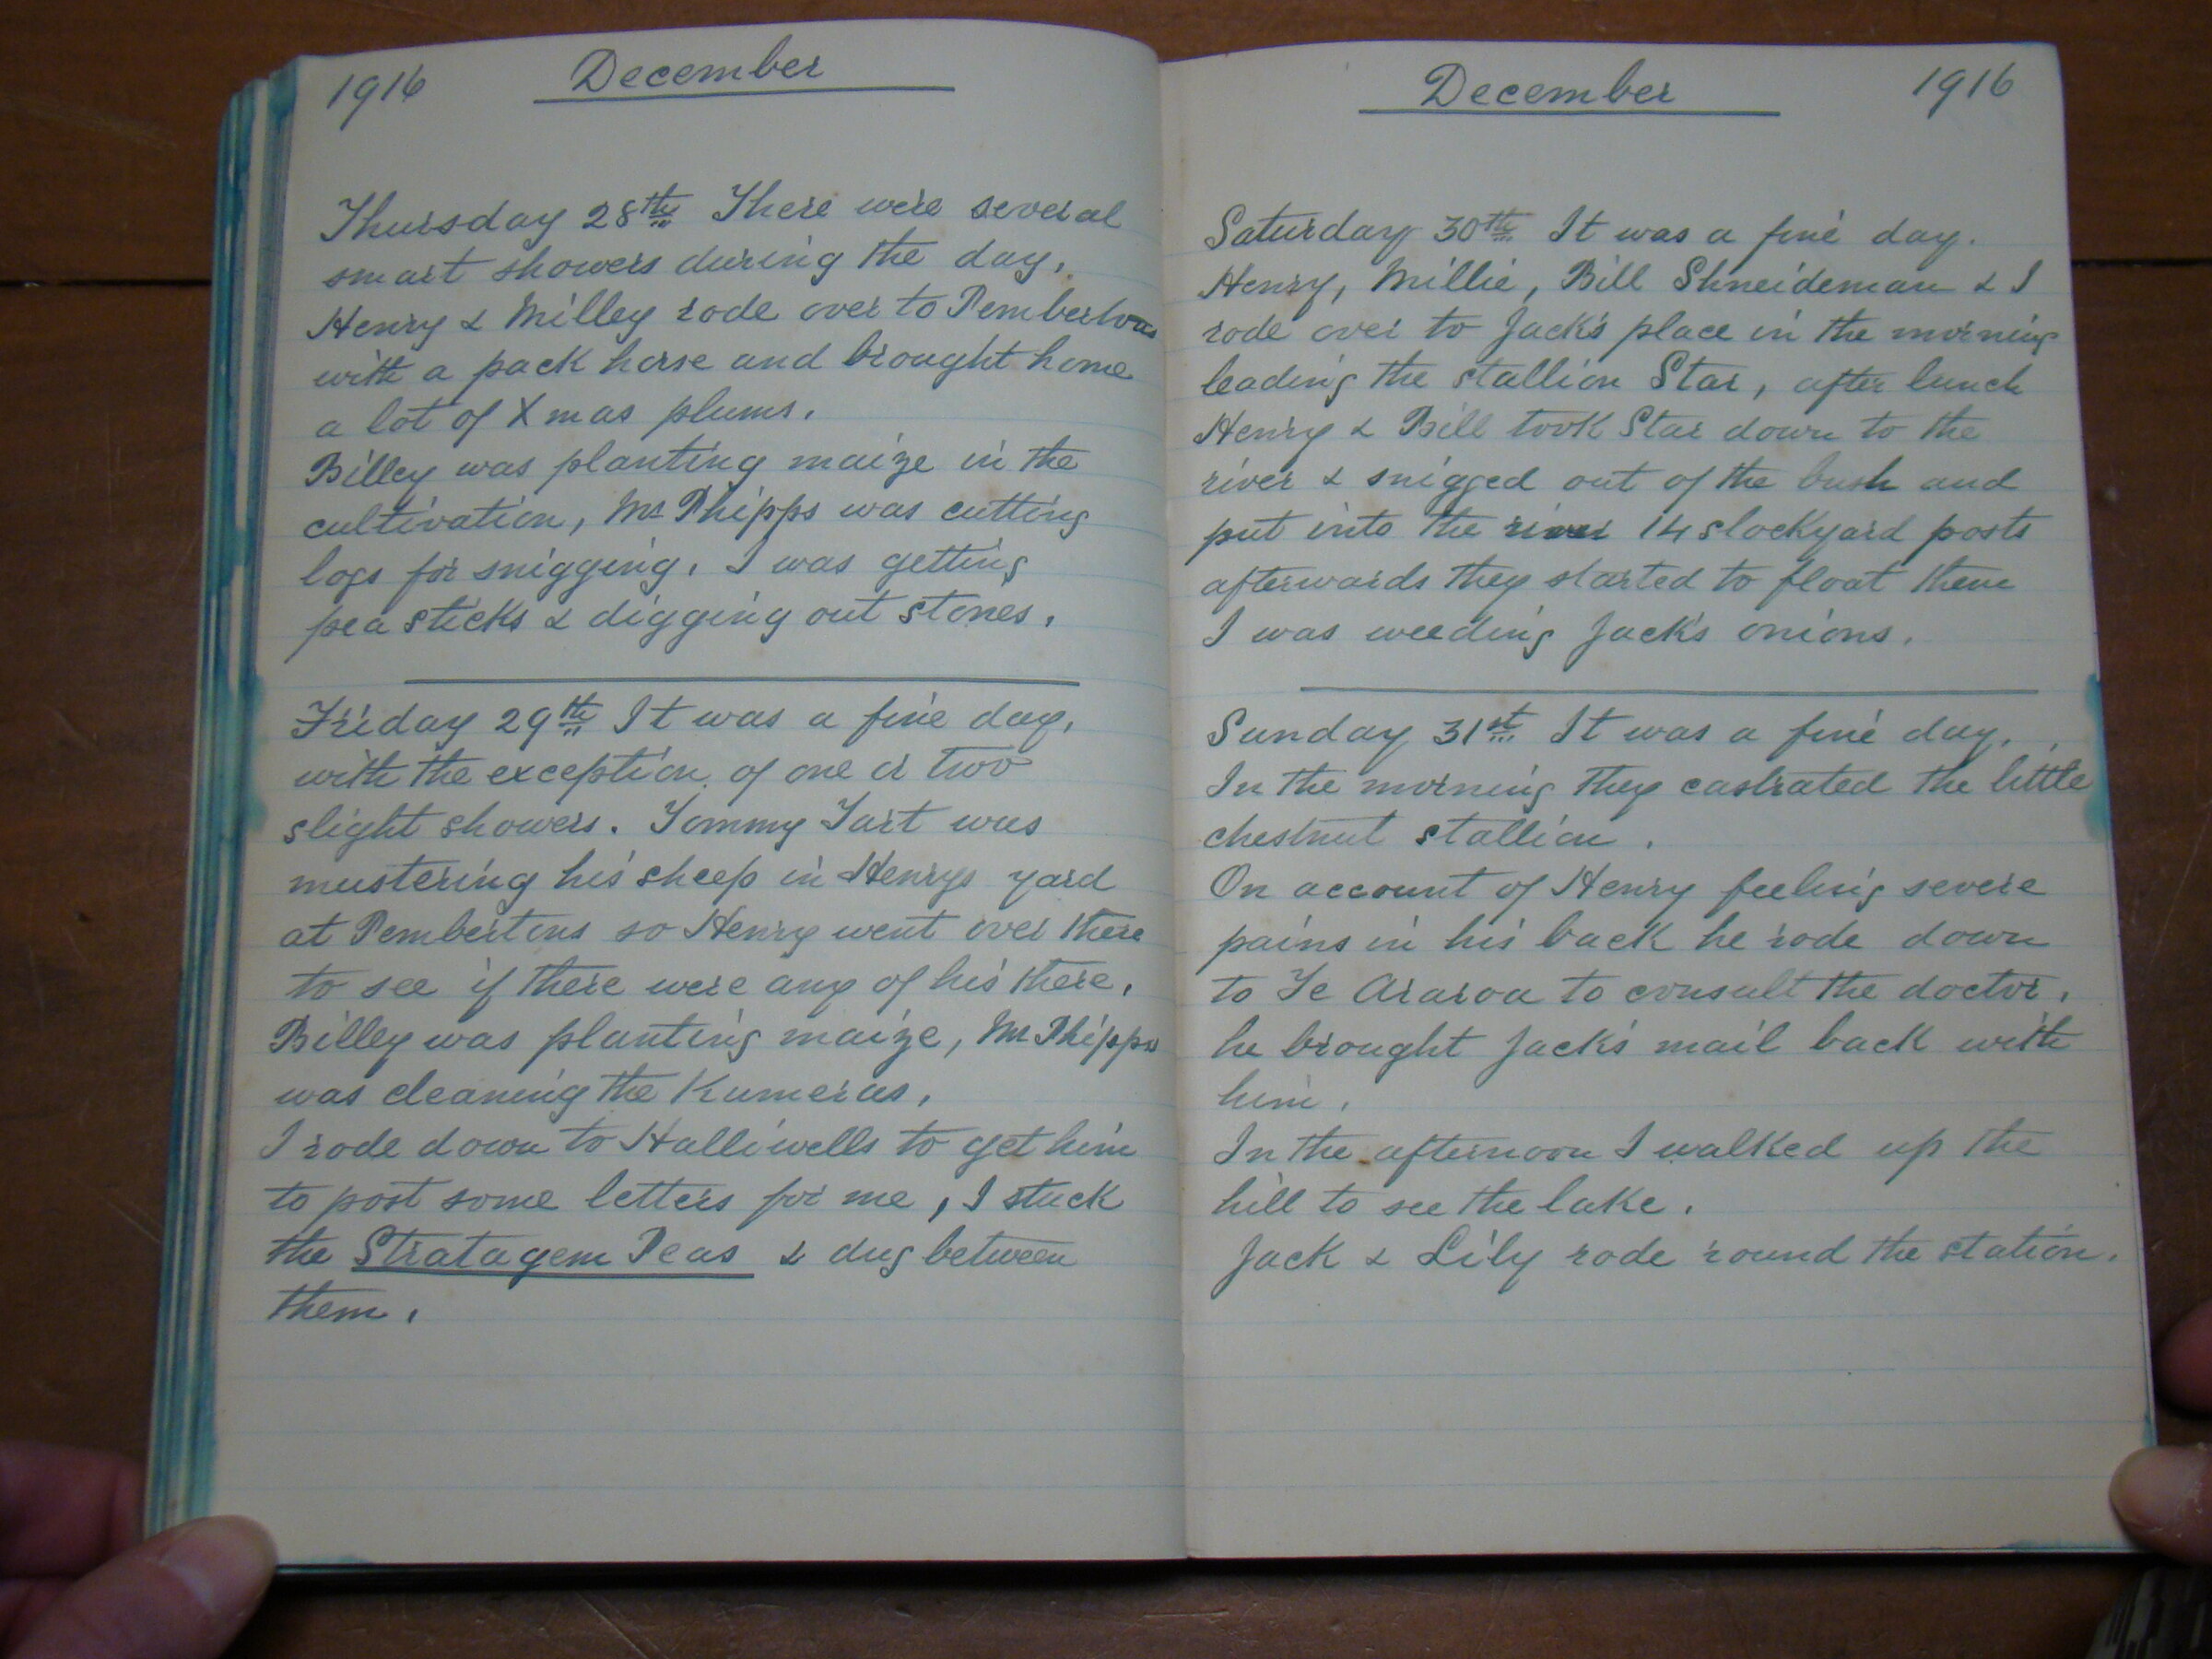 1916 December
Thursday 28th There were several
smart showers during the day.
Henry & Milley rode over to Pembertons
with a pack horse and brought home
a lot of Xmas plums.
Billey was planting maize in the
cultivation, Mr Phipps was cutting
logs for snigging. I was getting
pea sticks & digging out stones.
Friday 29th It was a fine day,
with the exception of one or two
slight showers. Tommy Tart was
mustering his sheep in Henrys yard
at Pembertons so Henry went over there
to see if there were any of his there.
Billey was planting maize, Mr Phipps
was cleaning the Kumeras.
I rode down to Halliwells to get him
to post some letters for me, I stuck
the Stratagem Peas & dug between
them.
December 1916
Saturday 30th It was a fine day.
Henry, Millie, Bill Shneideman & I
rode over to Jack's place in the morning
leading the stallion Star, after lunch
Henry & Bill took Star down to the
river & snigged out of the bush and
put into the river 14 stockyard posts
afterwards they started to float them
I was weeding Jack's onions.
Sunday 31st It was a fine day.
In the morning they castrated the little
chestnut stallion.
On account of Henry feeling severe
pains in his back he rode down
to Te Araroa to consult the doctor,
he brought Jack's mail back with
him.
In the afternoon I walked up the
hill to see the lake.
Jack & Lily rode round the station.